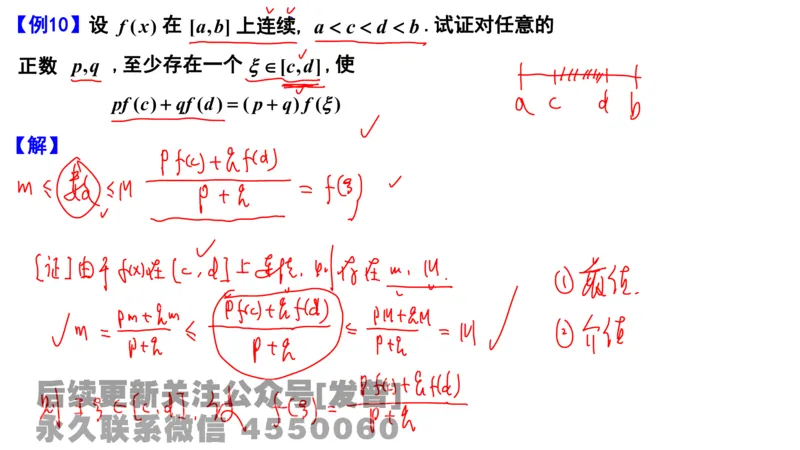 【例10】设 f(x) 在 [a,b] 上连续, a < c < d < b . 试证对任意的
正数 p,q ,至少存在一个 ξ∈[c,d] ,使
pf(c)+qf(d)=(p+q)f(ξ)
a c d b
【解】
m ≤ 数 ≤ M (pf(c)+qf(d))/(p+q) = f(ξ)
[证] 由于 f(x)在 [c,d] 上连续, 则存在 m, M.
① 最值.
m = (pm+qm)/(p+q) ≤ (pf(c)+qf(d))/(p+q) ≤ (pM+qM)/(p+q) = M
② 介值
则 ξ∈[c,d], f(ξ) = (pf(c)+qf(d))/(p+q)
后续更新关注公众号[发誓]
永久联系微信 4550060